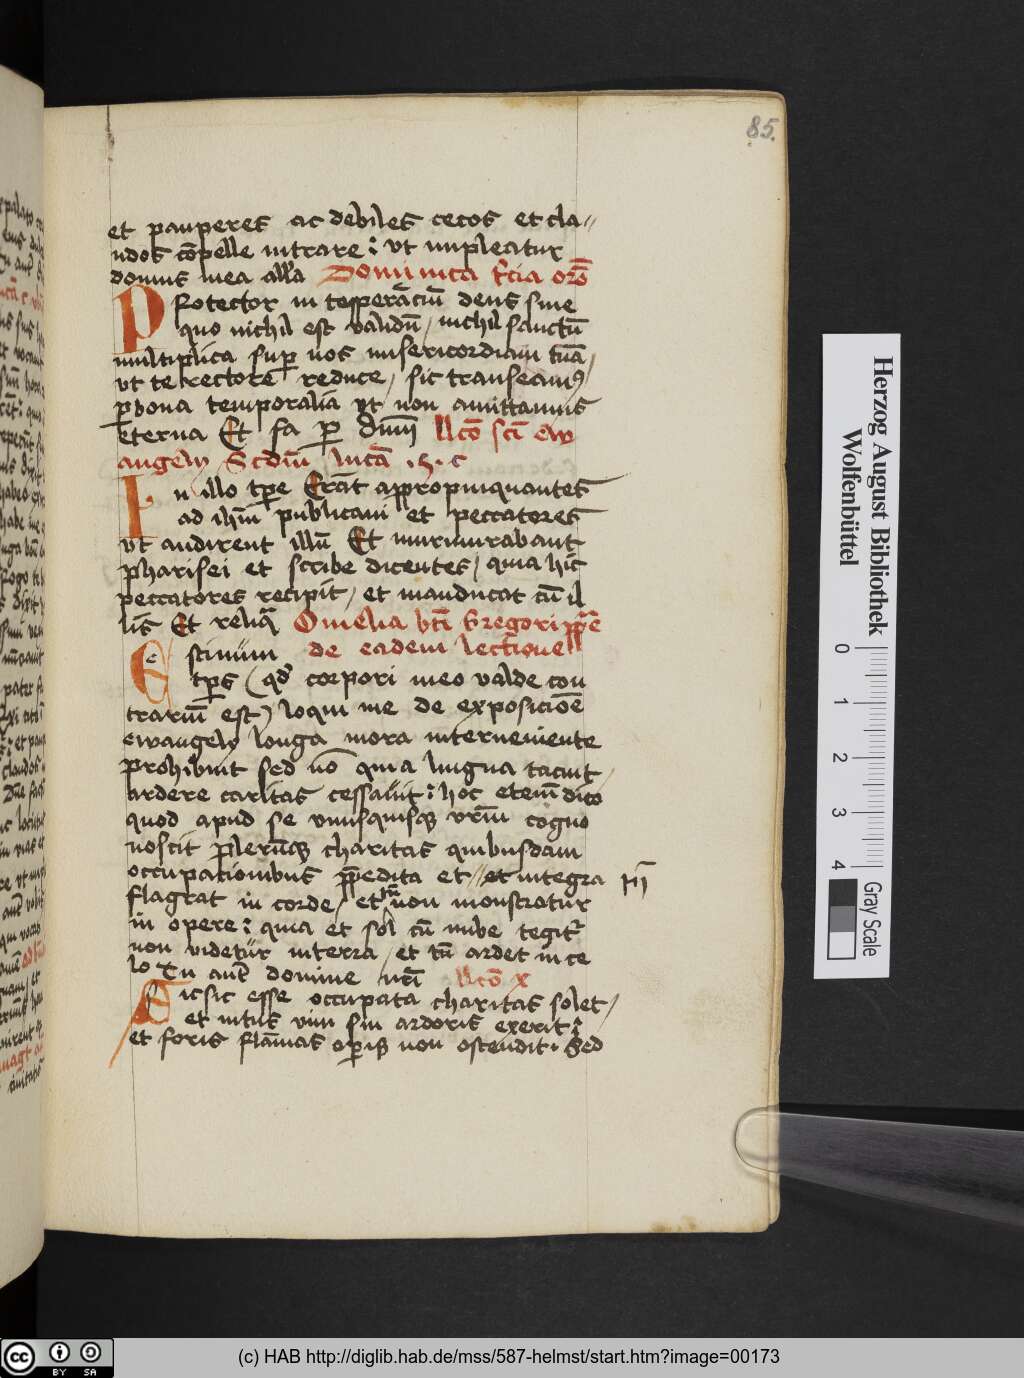 85.
et pauperes ac debiles cecos et cla//
udos cōpelle intrare : vt impleatur
domus mea alla Dominica t̄cia orō
Protector in te sperāciū deus sine
quo nichil est validū / nichil sanctū
multiplica sup nos misericordiam tuā /
vt te rectore reduce / sic transeamꝰ /
p bona temporalia vt non amittamus
eterna Et fa p dnm̄ Lcō scī ew
angely Scdm̄ lucā .h. c
In illo tpe Erāt appropinquantes
ad ihm̄ publicani et peccatores
vt audirent illū Et murmurabant
pharisei et scribe dicentes / quia hic
peccatores recipit / et manducat cū il
lis Et reliq̄ Omelia bti Gregori ppe
Estiuum de eadem lectione
tps ( qd corpori meo valde con
trariū est ) loqui me de exposicōe
ewangely longa mora interueniente
prohibuit sed nō quia lingua tacuit /
ardere caritas cessauit : hoc eteī dico
quod apud se vnusquisqꝫ vrm̄ cogno
noscit plerūqꝫ charitas quibusdam
occupationibus ppedita et // et integra
flagrat in corde / et tn̄ non monstratur
in opere : quia et sol cū nube tegit̄
non videtur interra / et tn̄ ardet in ce
lo Tu autē domine nrī Lcō x
Sicsic esse occupata charitas solet /
et intus vim sui ardoris exerit :
et foris flāmas opis non ostendit . Sed
Herzog August Bibliothek
Wolfenbüttel
0 1 2 3 4
Gray Scale
cc BY SA
(c) HAB http://diglib.hab.de/mss/587-helmst/start.htm?image=00173